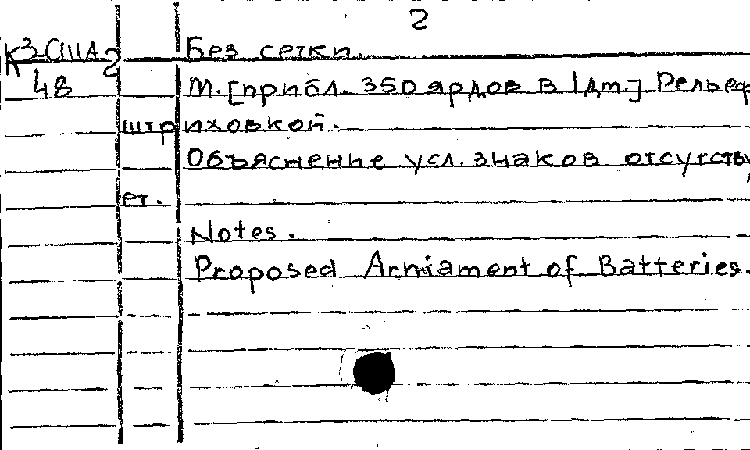 2
К3-США2 Без сетки.
48 М. [прибл. 350 ярдов в 1 дм.] Рельеф
штриховкой.
Объяснение усл. знаков отсутству
ет.
Notes.
Proposed Armament of Batteries.